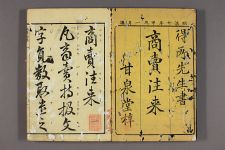 得所先生書
商賣往来
甘泉堂梓
商賣往来
凡商賣持扱文
字員数取遣之